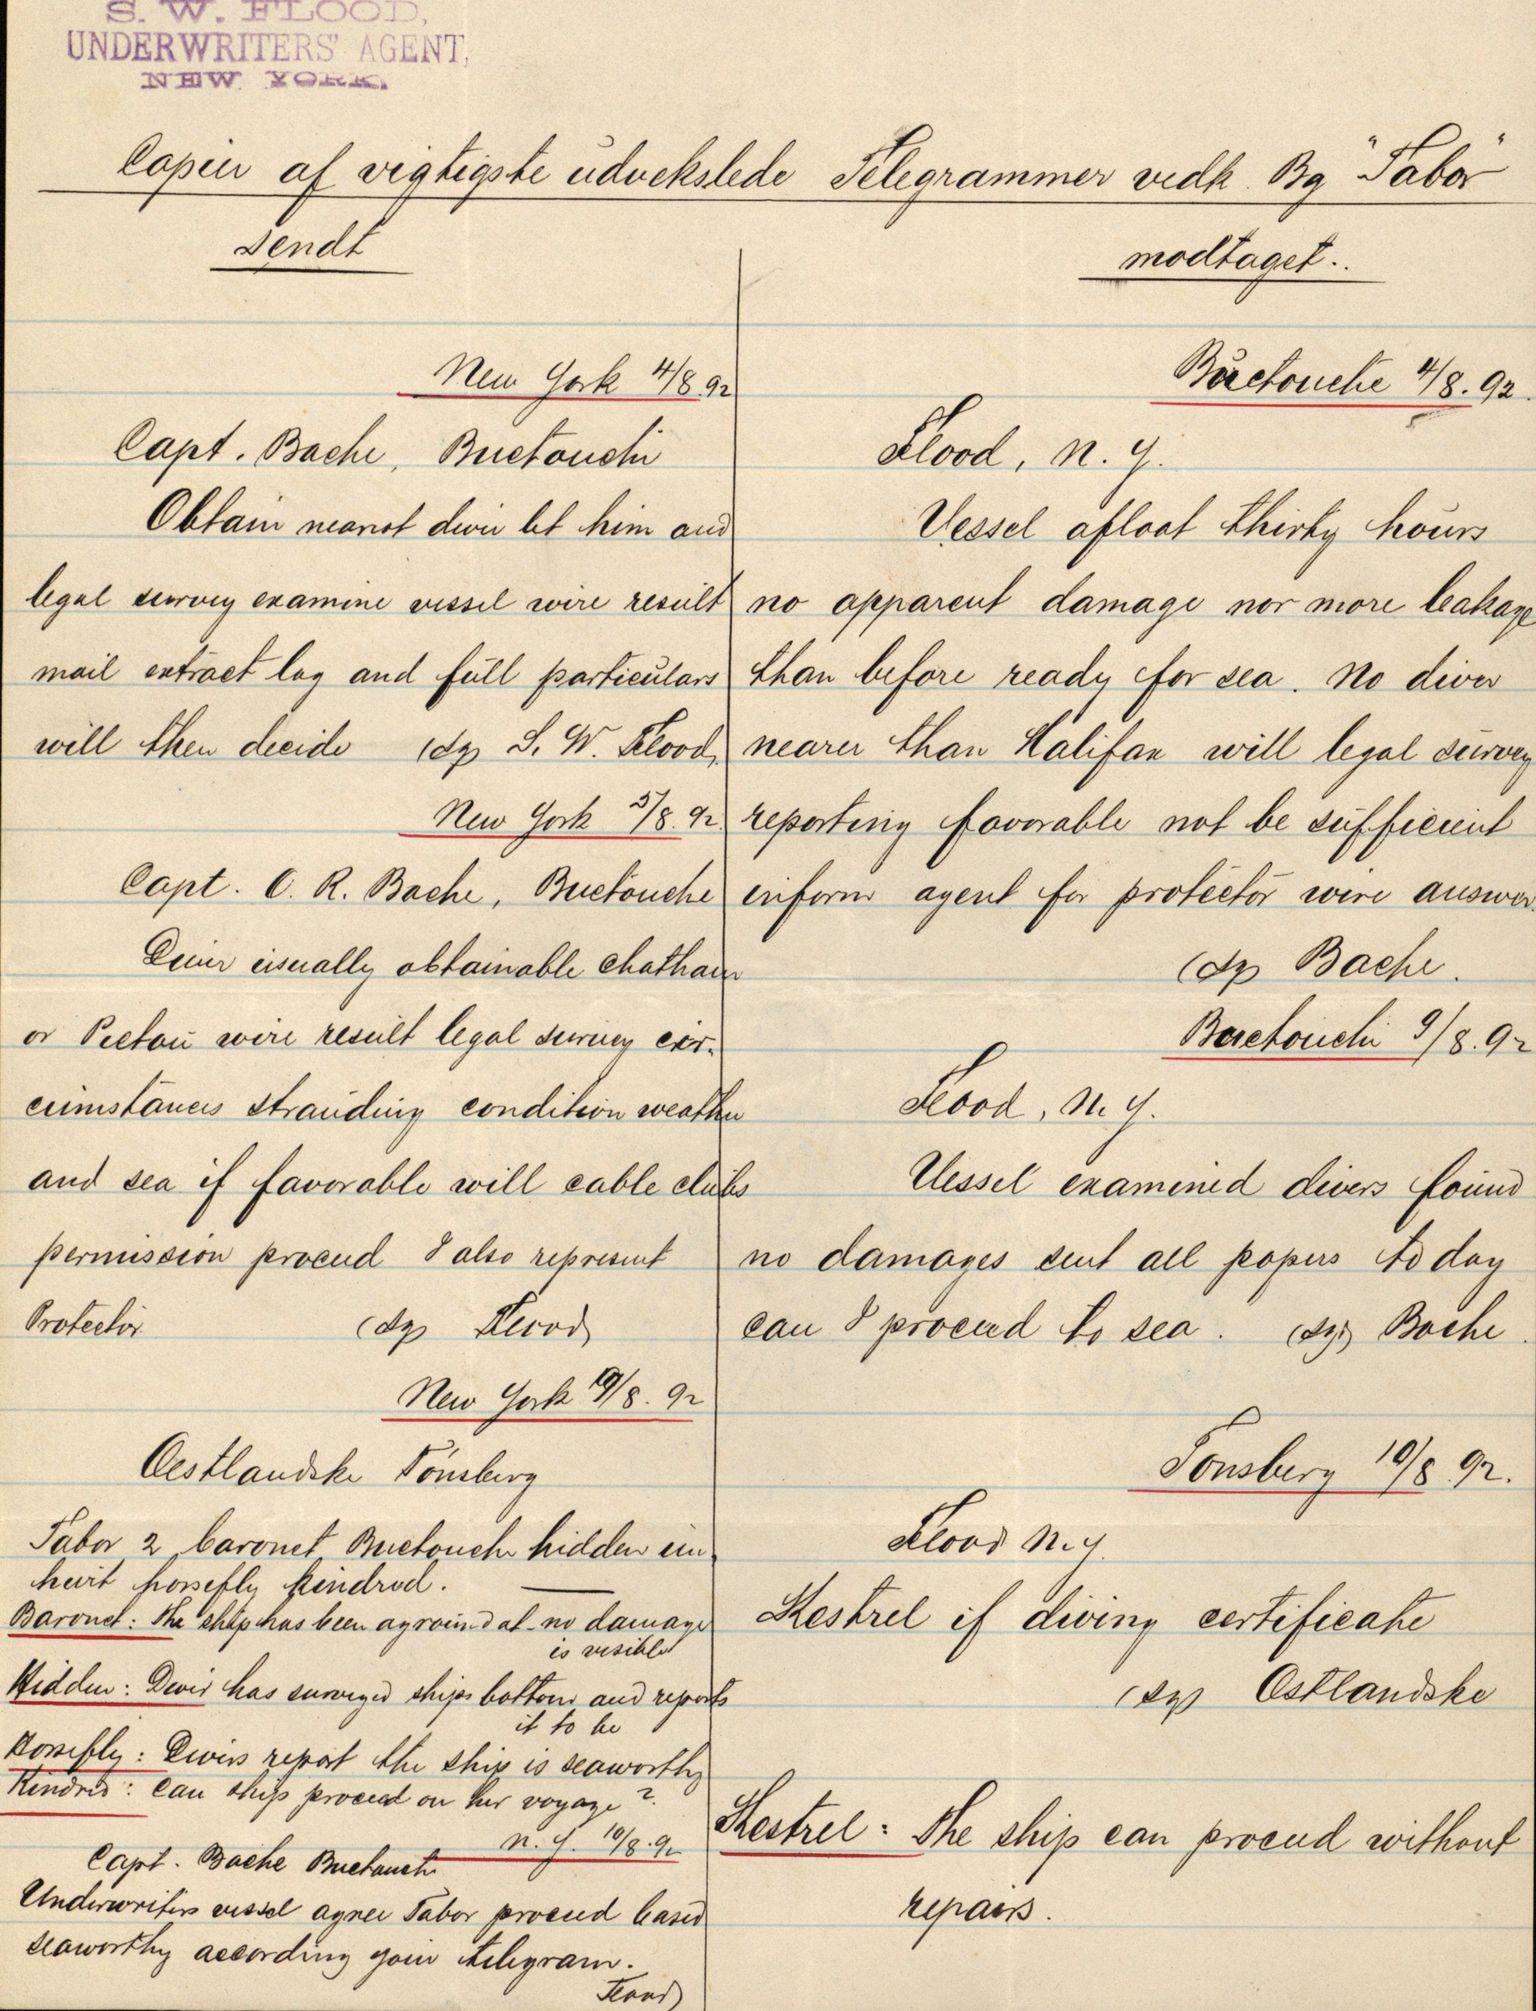 S. W. FLOOD,
UNDERWRITERS' AGENT,
NEW YORK.
Copier af vigtigste udvekslede Telegrammer vedk. Bg "Tabor"
sendt
New York 4/8 92
Capt. Bache, Buctouche
Obtain nearest diver let him and
legal survey examine vessel wire result
mail extract log and full particulars
will then decide (sg) S. W. Flood,
New York 5/8. 92
Capt. O. R. Bache, Buctouche
Diver usually obtainable Chatham
or Pictou wire result legal survey cir-
cumstances stranding condition weather
and sea if favorable will cable clubs
permission proceed I also represent
Protector (sg) Flood
New York 10/8. 92
Oestlandske Tönsberg
Tabor 2 baronet Buctouche hidden un
hurt horsefly kindred.
Baronet: The ship has been aground at - no damage
is visible
Hidden: Diver has surveyed ships bottom and reports
it to be
Horsefly: Divers report the ship is seaworthy
Kindred: Can ship proceed on her voyage?
N. Y. 10/8. 92
Capt. Bache Buctouche
Underwriters vessel agree Tabor proceed based
seaworthy according your telegram.
Flood
modtaget..
Buctouche 4/8. 92.
Flood, N. Y.
Vessel afloat thirty hours
no apparent damage nor more leakage
than before ready for sea. No diver
nearer than Halifax will legal survey
reporting favorable not be sufficient
inform agent for protector wire answer.
(sg) Bache.
Buctouche 9/8. 92
Flood, N. Y.
Vessel examined divers found
no damages sent all papers to day
can I proceed to sea. (sg) Bache.
Tonsberg 10/8 92.
Flood N. Y.
Kestrel if diving certificate
(sg) Ostlandske
Kestrel: The ship can proceed without
repairs.